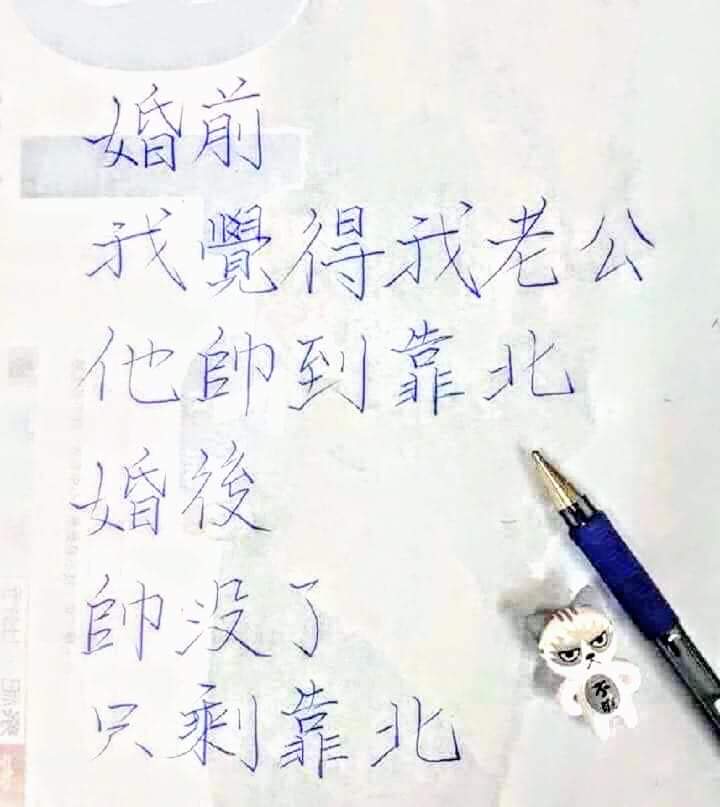 婚前
我覺得我老公
他帥到靠北
婚後
帥沒了
只剩靠北